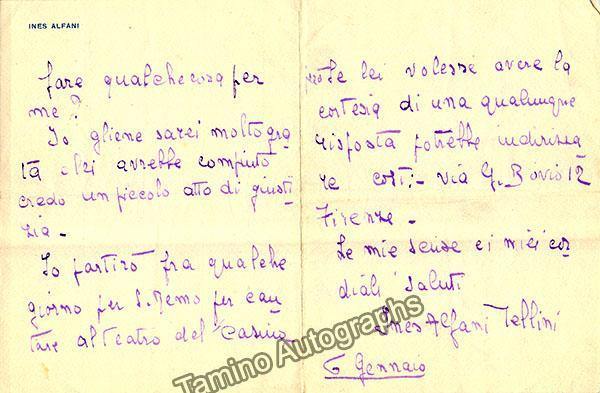 INES ALFANI
fare qualchecosa per
me?
Io gliene sarei molto gra
ta e lei avrebbe compiuto
credo un piccolo atto di giusti
zia -
Io partirò fra qualche
giorno per S. Remo per can
tare al teatro del Casino
Se lei volesse avere la
cortesia di una qualunque
risposta potrebbe indirizza
re così:- via G. Bovio 12
Firenze -
Le mie scuse e i miei cor
diali saluti
Ines Alfani Tellini
6 Gennaio
Tamino Autographs